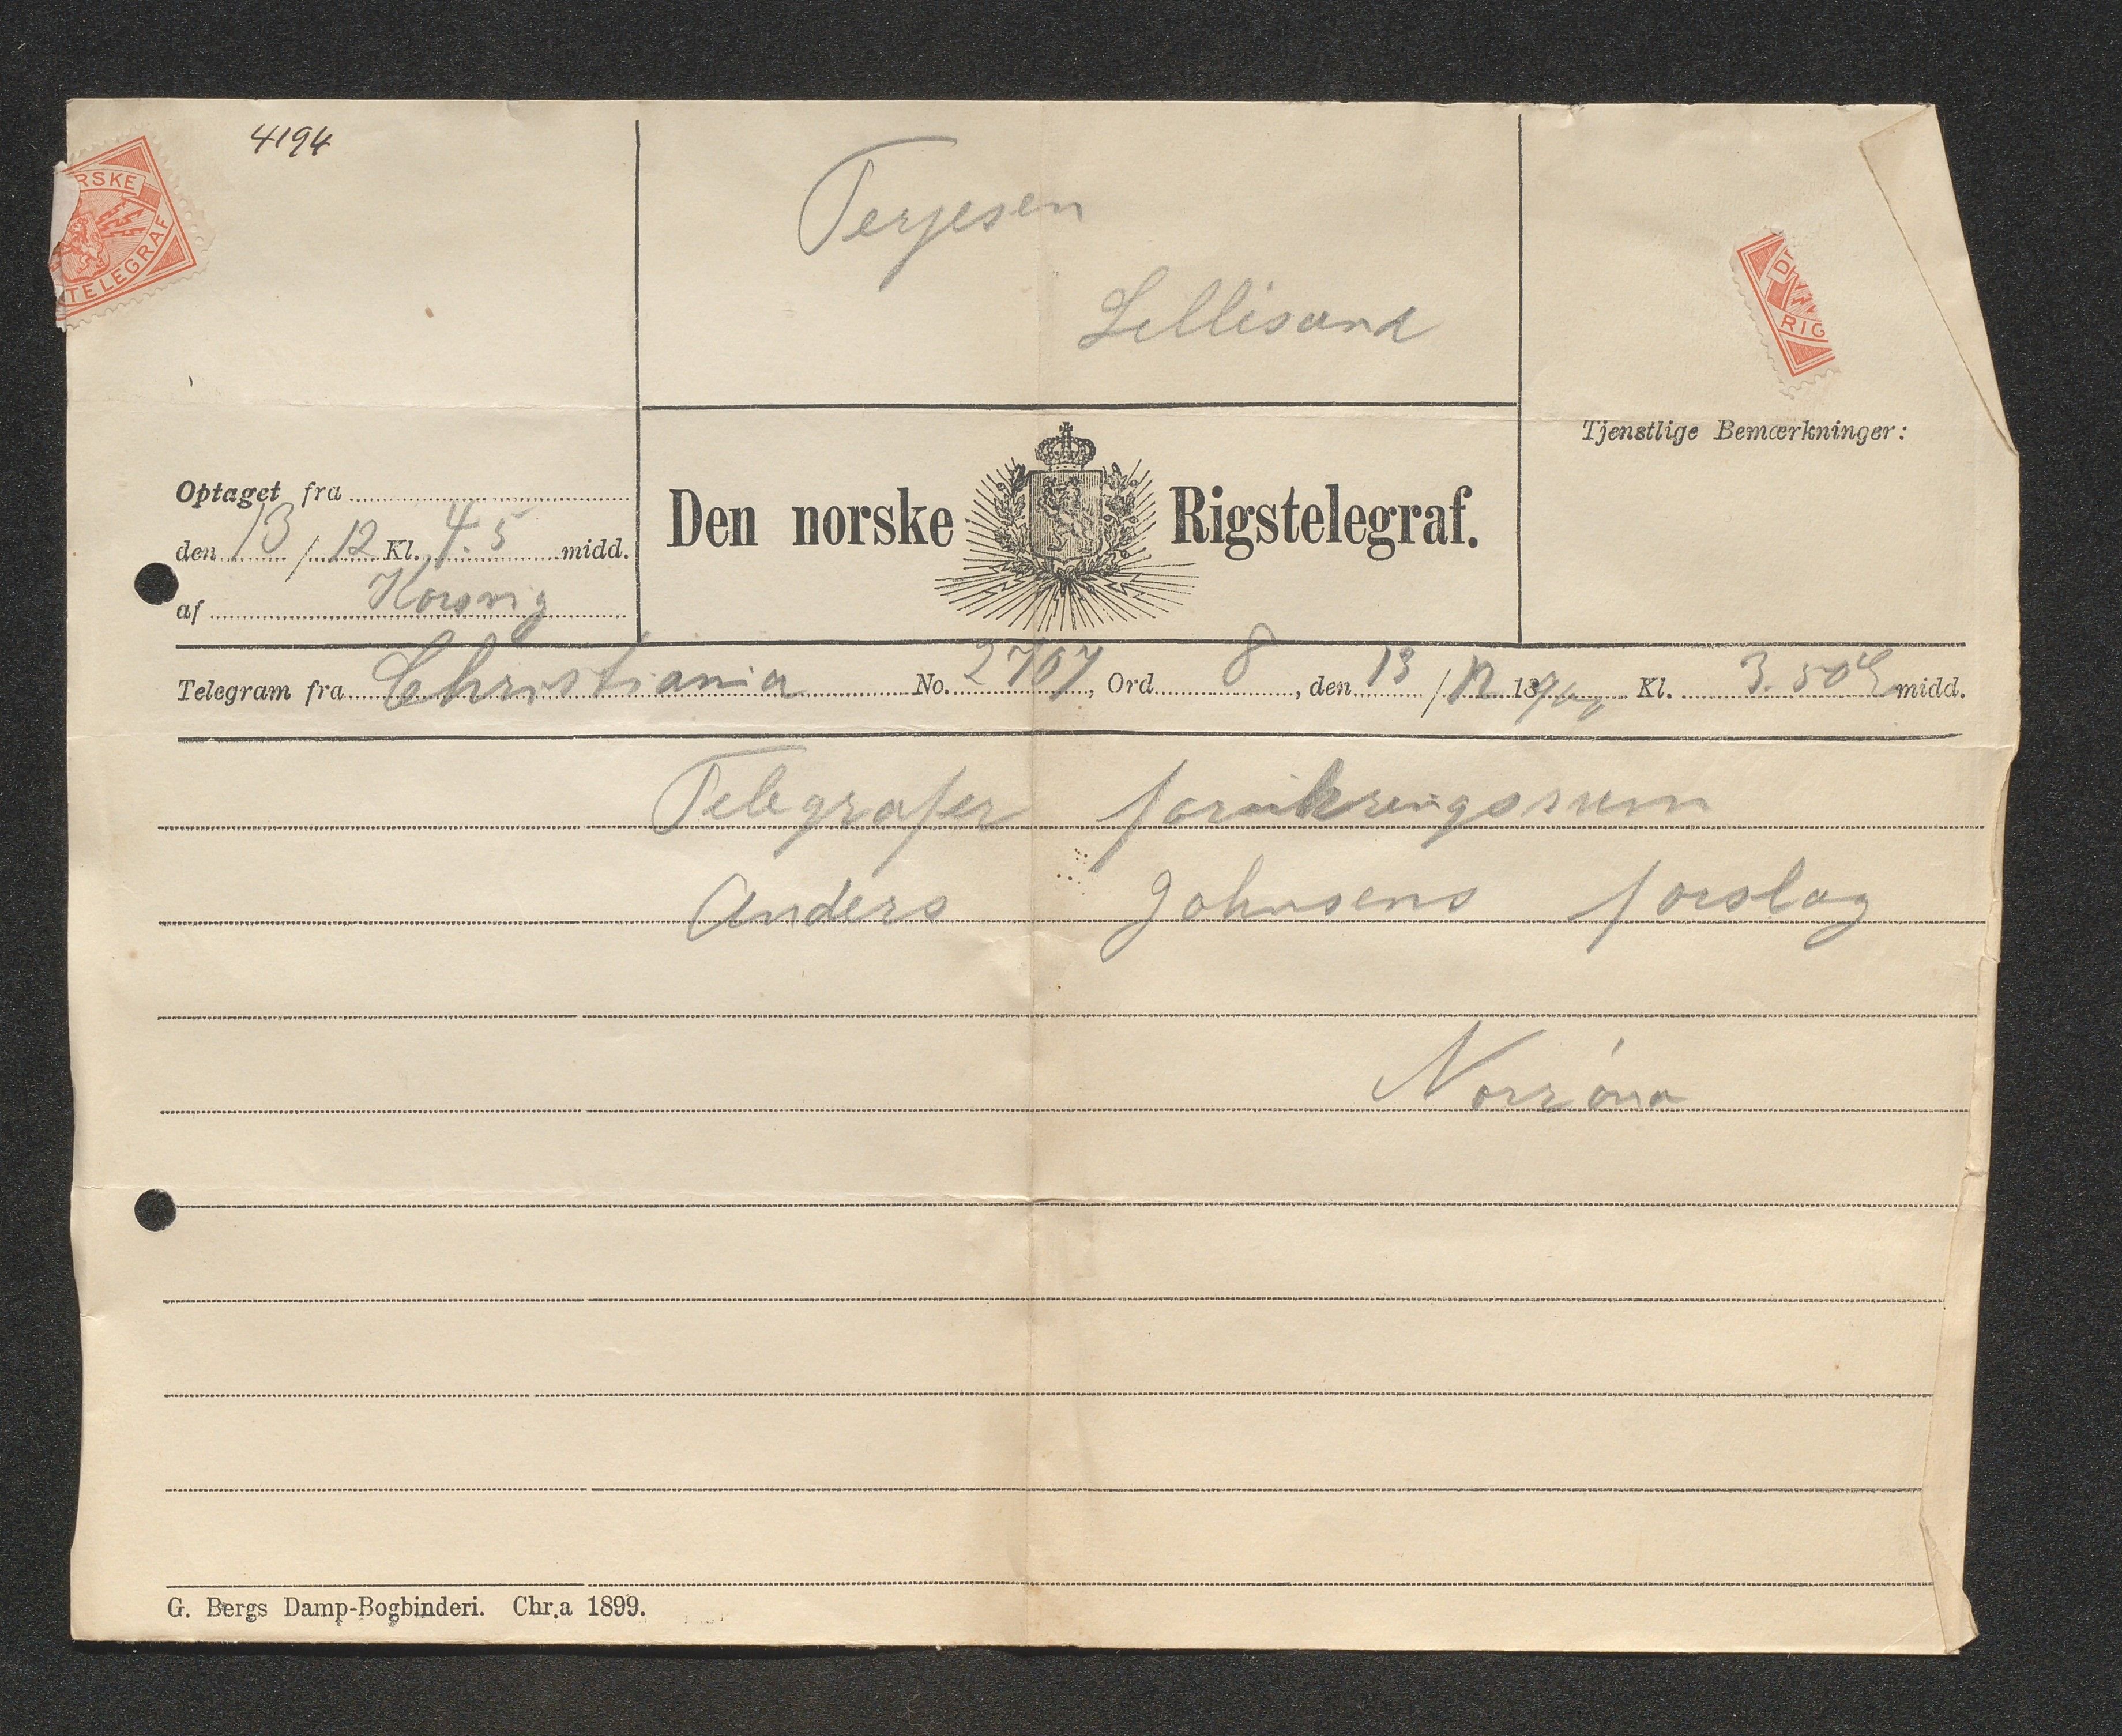 4194
RSKE
TELEGRAF
Terjesen
Lillisand
DE
RIG
Tjenstlige Bemærkninger:
Optaget fra
den 13 / 12 Kl. 4.5 midd.
af Korsvig
Den norske Rigstelegraf.
Telegram fra Christiania No. 2707, Ord 8, den 13 / 12 18 Kl. 3.50 E midd.
Telegrafer forsikringssum
Anders Johnsens forslag
Norróna
G. Bergs Damp-Bogbinderi. Chr.a 1899.